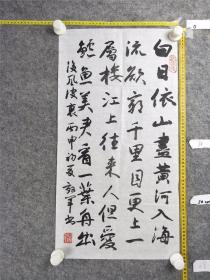 白日依山盡黃河入海
流欲窮千里目更上一
層楼江上往来人但愛
鲈魚美君看一葉舟出
没風波裏丙申初夏